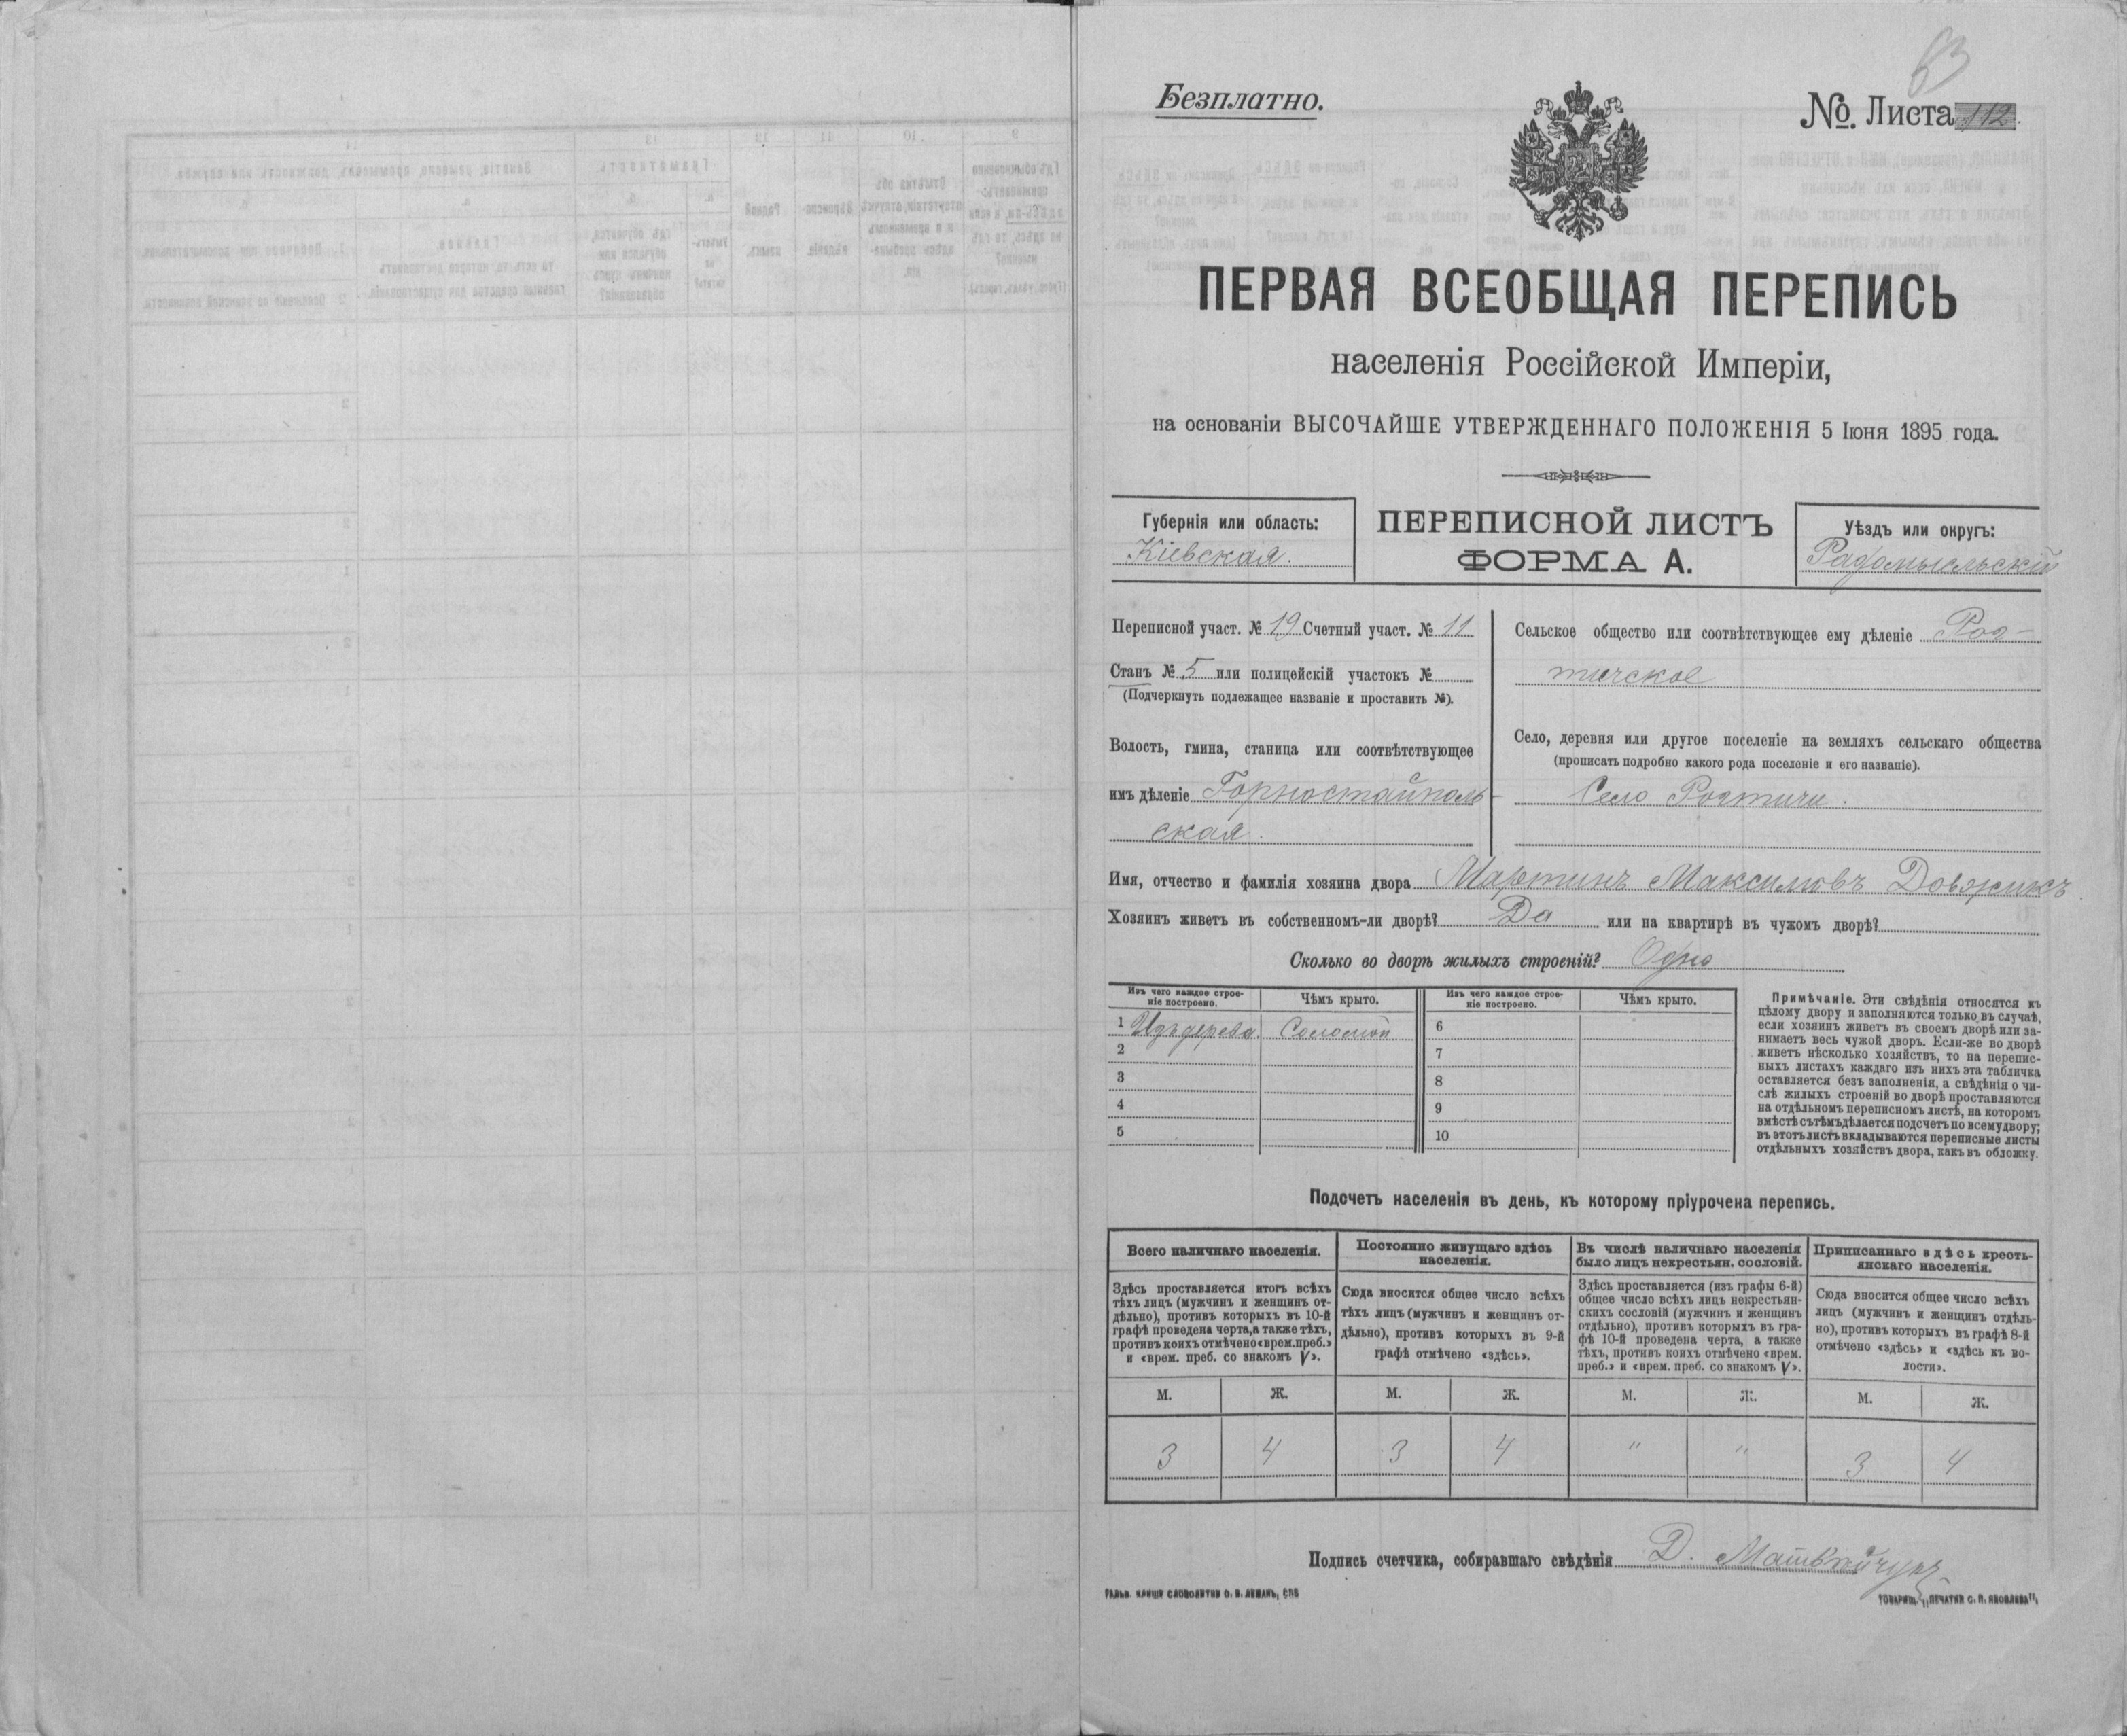 63
Безплатно.
№. Листа 112.
ПЕРВАЯ ВСЕОБЩАЯ ПЕРЕПИСЬ
населенія Россійской Имперіи,
на основаніи ВЫСОЧАЙШЕ УТВЕРЖДЕННАГО ПОЛОЖЕНІЯ 5 Іюня 1895 года.
Губернія или область:
Кіевская.
ПЕРЕПИСНОЙ ЛИСТЪ
ФОРМА А.
Уѣздъ или округъ:
Радомысльскій
Переписной участ. № 19 Счетный участ. № 11
Станъ № 5 или полицейскій участокъ №
(Подчеркнуть подлежащее названіе и проставить №).
Волость, гмина, станица или соотвѣтствующее
имъ дѣленіе Горностайполь-
ская.
Сельское общество или соотвѣтствующее ему дѣленіе
Село, деревня или другое поселеніе на земляхъ сельскаго общества
(прописать подробно какого рода поселеніе и его названіе).
Село
Имя, отчество и фамилія хозяина двора Мартинъ Максимовъ Довжикъ
Хозяинъ живетъ въ собственномъ-ли дворѣ? Да или на квартирѣ въ чужомъ дворѣ?
Сколько во дворѣ жилыхъ строеній? Одно
Изъ чего каждое строе-
ніе построено.
Чѣмъ крыто.
Изъ чего каждое строе-
ніе построено.
Чѣмъ крыто.
1 Изъ дерева Соломой 6
2 7
3 8
4 9
5 10
Примѣчаніе. Эти свѣдѣнія относятся къ
цѣлому двору и заполняются только въ случаѣ,
если хозяинъ живетъ въ своемъ дворѣ или за-
нимаетъ весь чужой дворъ. Если-же во дворѣ
живетъ нѣсколько хозяйствъ, то на перепис-
ныхъ листахъ каждаго изъ нихъ эта табличка
оставляется безъ заполненія, а свѣдѣнія о чи-
слѣ жилыхъ строеній во дворѣ проставляются
на отдѣльномъ переписномъ листѣ, на которомъ
вмѣстѣ съ тѣмъ дѣлается подсчетъ по всему двору;
въ этотъ листъ вкладываются переписные листы
отдѣльныхъ хозяйствъ двора, какъ въ обложку.
Подсчетъ населенія въ день, къ которому пріурочена перепись.
Всего наличнаго населенія.
Здѣсь проставляется итогъ всѣхъ
тѣхъ лицъ (мужчинъ и женщинъ от-
дѣльно), противъ которыхъ въ 10-й
графѣ проведена черта, а также тѣхъ,
противъ коихъ отмѣчено «врем. преб.»
и «врем. преб. со знакомъ V».
М. Ж.
3 4
Постоянно живущаго здѣсь
населенія.
Сюда вносится общее число всѣхъ
тѣхъ лицъ (мужчинъ и женщинъ от-
дѣльно), противъ которыхъ въ 9-й
графѣ отмѣчено «здѣсь».
М. Ж.
3 4
Въ числѣ наличнаго населенія
было лицъ некрестьян. сословій.
Здѣсь проставляется (изъ графы 6-й)
общее число всѣхъ лицъ некрестьян-
скихъ сословій (мужчинъ и женщинъ
отдѣльно), противъ которыхъ въ гра-
фѣ 10-й проведена черта, а также
тѣхъ, противъ коихъ отмѣчено «врем.
преб.» и «врем. преб. со знакомъ V».
М. Ж.
" "
Приписаннаго здѣсь кресть-
янскаго населенія.
Сюда вносится общее число всѣхъ
лицъ (мужчинъ и женщинъ отдѣль-
но), противъ которыхъ въ графѣ 8-й
отмѣчено «здѣсь» и «здѣсь къ во-
лости».
М. Ж.
3 4
Подпись счетчика, собиравшаго свѣдѣнія Д. Матвѣйчукъ
ГАЛЬВ. КЛИШЕ СЛОВОЛИТНИ О. И. ЛЕМАНЪ, СПБ
ТОВАРИЩ. „ПЕЧАТНИ С. П. ЯКОВЛЕВА",